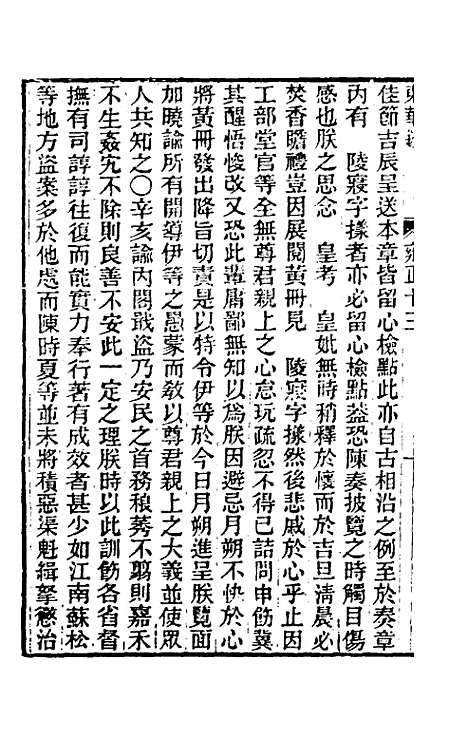 東華錄 雍正十三
佳節吉辰呈送本章皆留心檢點此亦自古相沿之例至於奏章
內有 陵寢字樣者亦必留心檢點葢恐陳奏披覽之時觸目傷
感也朕之思念 皇考 皇妣無時稍釋於懷而於吉旦淸晨必
焚香瞻禮豈因展閱黃冊見 陵寢字樣然後悲戚於心乎止因
工部堂官等全無尊君親上之心怠玩疏忽不得已詰問申飭冀
其醒悟悛改又恐此輩庸鄙無知以爲朕因避忌月朔不快於心
將黃冊發出降旨切責是以特令伊等於今日月朔進呈朕覽面
加曉諭所有開導伊等之愚蒙而敎以尊君親上之大義並使眾
人共知之〇辛亥諭內閣戢盜乃安民之首務稂莠不翦則嘉禾
不生姦宄不除則良善不安此一定之理朕時以此訓飭各省督
撫有司諄諄往復而能實力奉行著有成效者甚少如江南蘇松
等地方盜案多於他處而陳時夏等並未將積惡渠魁緝拏懲治